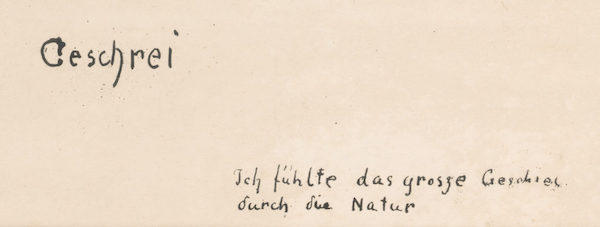 Geschrei
Ich fühlte das grosze Geschrei
durch die Natur